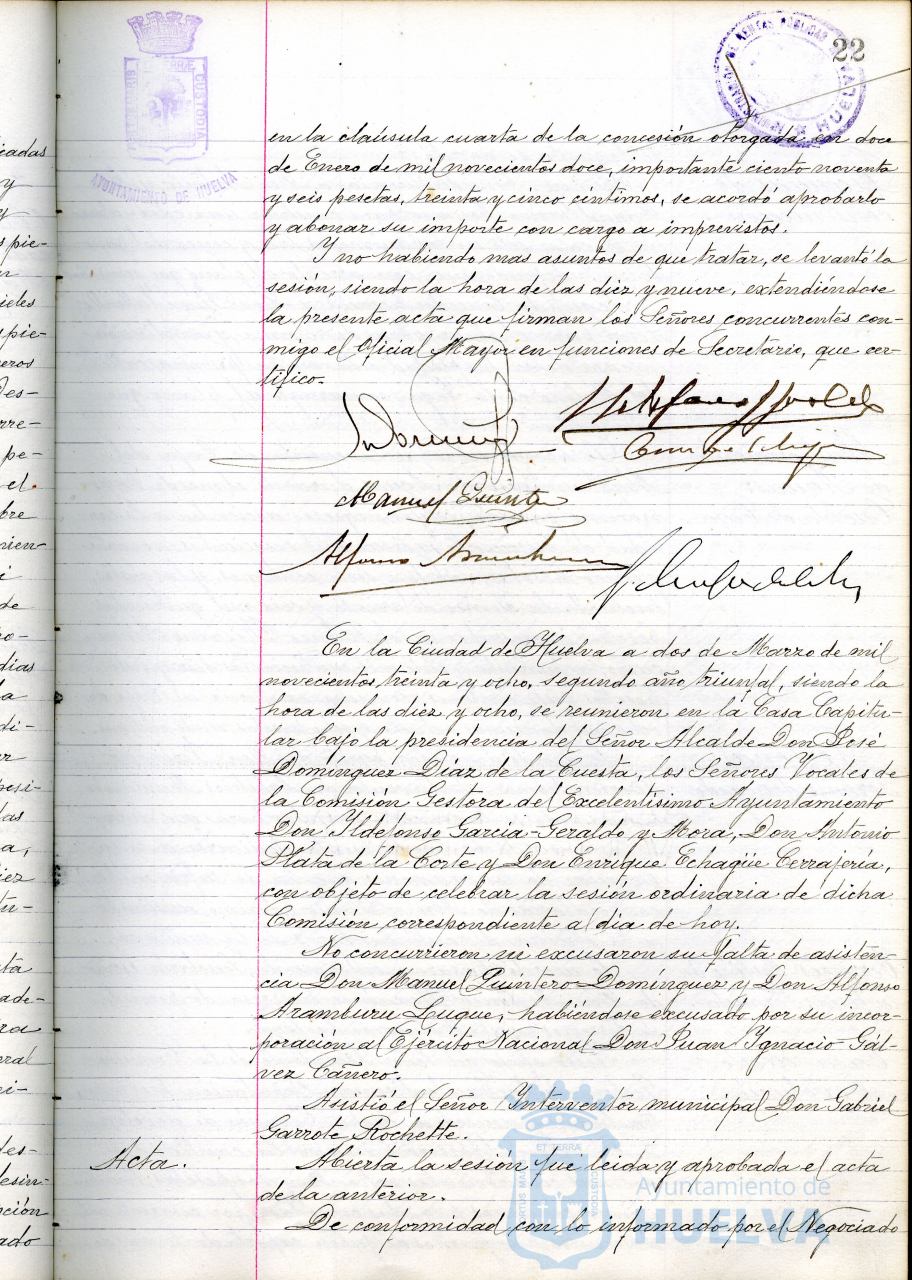 22
AYUNTAMIENTO DE HUELVA
CUSTODIA
HUELVA
en la claúsula cuarta de la concesión otorgada en doce
de Enero de mil novecientos doce, importante ciento noventa
y seis pesetas, treinta y cinco céntimos, se acordó aprobarlo
y abonar su importe con cargo a imprevistos.
Y no habiendo mas asuntos de que tratar, se levantó la
sesión, siendo la hora de las diez y nueve, extendiéndose
la presente acta que firman los Señores concurrentes con-
migo el Oficial Mayor en funciones de Secretario, que cer-
tifico.
Manuel Quintero
Alfonso Aramburu
En la Ciudad de Huelva a dos de Marzo de mil
novecientos treinta y ocho, segundo año triunfal, siendo la
hora de las diez y ocho, se reunieron en la Casa Capitu-
lar bajo la presidencia del Señor Alcalde Don José
Domínguez Díaz de la Cuesta, los Señores Vocales de
la Comisión Gestora del Excelentísimo Ayuntamiento
Don Ildefonso García-Geraldo y Mora, Don Antonio
Plata de la Corte y Don Enrique Echagüe Cerrajería,
con objeto de celebrar la sesión ordinaria de dicha
Comisión correspondiente al día de hoy.
No concurrieron ni excusaron su falta de asisten-
cia Don Manuel Quintero Domínguez y Don Alfonso
Aramburu Luque, habiéndose excusado por su incor-
poración al Ejército Nacional Don Juan Ignacio Gál-
vez Cañero.
Asistió el Señor Interventor municipal Don Gabriel
Garrote Rochette.
Acta. Abierta la sesión fué leida y aprobada el acta
de la anterior.
De conformidad con lo informado por el Negociado
Ayuntamiento de
HUELVA